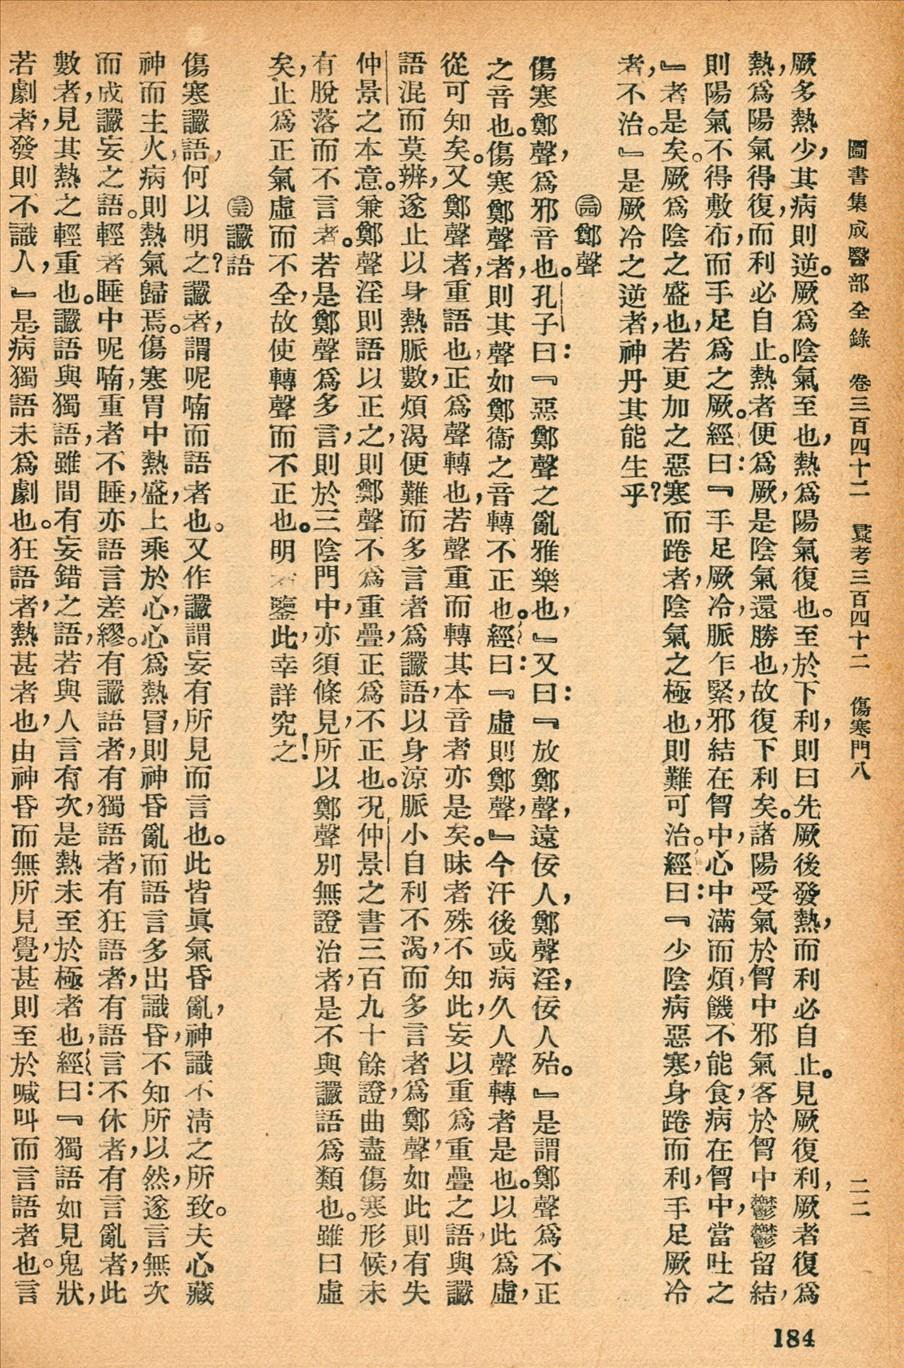 圖書集成醫部全錄　卷三百四十二　彙考三百四十二　傷寒門八　二二
厥多熱少，其病則逆。厥爲陰氣至也，熱爲陽氣復也。至於下利，則曰先厥後發熱，而利必自止。見厥復利，厥者復爲
熱，爲陽氣得復，而利必自止。熱者便爲厥，是陰氣還勝也，故復下利矣。諸陽受氣於胷中，邪氣客於胷中，鬱鬱留結，
則陽氣不得敷布，而手足爲之厥。經曰：『手足厥冷，脈乍緊，邪結在胷中，心中滿而煩，饑不能食，病在胷中，當吐之
』者是矣。厥爲陰之盛也，若更加之惡寒而踡者，陰氣之極也，則難可治。經曰：『少陰病惡寒，身踡而利，手足厥冷
者，不治。』是厥冷之逆者，神丹其能生乎？
鄭聲
傷寒鄭聲，爲邪音也。孔子曰：『惡鄭聲之亂雅樂也，』又曰：『放鄭聲，遠佞人，鄭聲淫，佞人殆。』是謂鄭聲爲不正
之音也。傷寒鄭聲者，則其聲如鄭衞之音，轉不正也。經曰：『虛則鄭聲，』今汗後或病久人聲轉者是也。以此爲虛，
從可知矣。又鄭聲者，重語也，正爲聲轉也，若聲重而轉其本音者亦是矣。昧者殊不知此，妄以重爲重疊之語，與讝
語混而莫辨，遂止以身熱脈數，煩渴便難而多言者爲讝語，以身涼脈小自利不渴，而多言者爲鄭聲，如此則有失
仲景之本意。兼鄭聲淫則語以正之，則鄭聲不爲重疊，正爲不正也。况仲景之書三百九十餘證，曲盡傷寒形候，未
有脫落而不言者。若是鄭聲爲多言，則於三陰門中，亦須條見，所以鄭聲別無證治者，是不與讝語爲類也。雖曰虛
矣，止爲正氣虛而不全，故使轉聲而不正也。明者鑒此，幸詳究之！
讝語
傷寒讝語，何以明之？讝者，謂呢喃而語者也。又作讝，謂妄有所見而言也。此皆眞氣昏亂，神識不清之所致。夫心藏
神而主火，病則熱氣歸焉。傷寒胃中熱盛，上乘於心，心爲熱冒，則神昏亂而語言多出，識昏不知所以然，遂言無次
而成讝妄之語。輕者睡中呢喃，重者不睡，亦語言差繆。有讝語者，有獨語者，有狂語者，有語言不休者，有言亂者，此
數者，見其熱之輕重也。讝語與獨語，雖間有妄錯之語，若與人言有次，是熱未至於極者也，經曰：『獨語如見鬼狀，
若劇者，發則不識人，』是病獨語未爲劇也。狂語者，熱甚者也，由神昏而無所見覺，甚則至於喊叫而言語者也。言
184